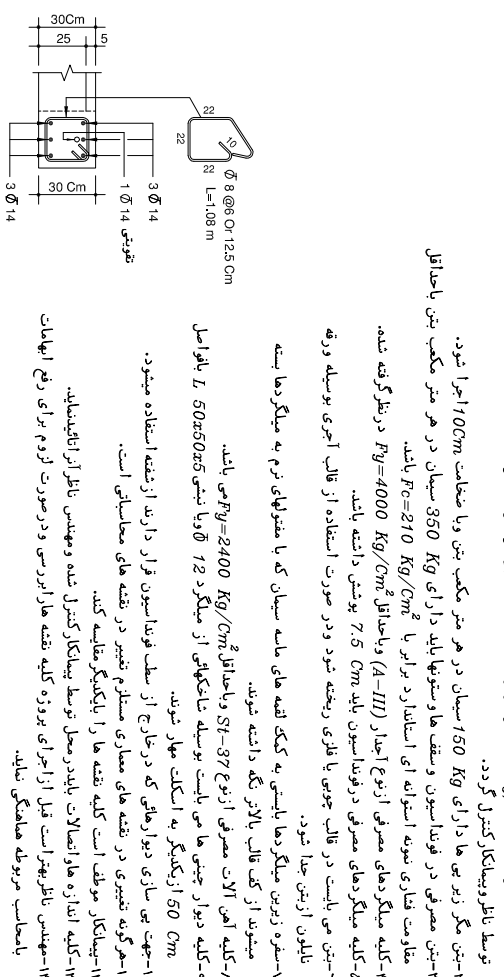 30Cm
25
5
22
22
22
10
Φ 8 @6 Or 12.5 Cm
L=1.08 m
30 Cm
3 Φ 14
1 Φ 14 تقویتی
3 Φ 14
توسط ناظر و پیمانکار کنترل گردد.
۲-بتن مگر زیر پی ها دارای 150 Kg سیمان در هر متر مکعب بتن وبا ضخامت 10Cm اجرا شود.
۳-بتن مصرفی در فونداسیون و سقف ها و ستونها باید دارای 350 Kg سیمان در هر متر مکعب بتن باحداقل
مقاومت فشاری نمونه استوانه ای استاندارد برابر با Fc=210 Kg/Cm² باشد.
۴-کلیه میلگردهای مصرفی ازنوع آجدار (A-III) وباحداقل Fy=4000 Kg/Cm² درنظرگرفته شده.
۵-کلیه میلگردهای مصرفی درفونداسیون باید 7.5 Cm پوشش داشته باشد.
۶-بتن می بایست در قالب چوبی یا فلزی ریخته شود ودر صورت استفاده از قالب آجری بوسیله ورقه
نایلون ازبتن جدا شود.
۷-سفره زیرین میلگردها بایستی به کمک لقمه های ماسه سیمان که با مفتولهای نرم به میلگردها بسته
میشوند از کف قالب بالاتر نگه داشته شوند.
۸-کلیه آهن آلات مصرفی ازنوع St-37 وباحداقل Fy=2400 Kg/Cm² می باشد.
۹-کلیه دیوار چینی ها می بایست بوسیله شاخکهائی از میلگرد Φ 12 ویا نبشی L 50x50x5 بافواصل
50 Cm ازیکدیگر به اسکلت مهار شوند.
۱۰-جهت پی سازی دیوارهائی که درخارج از سطح فونداسیون قرار دارند ازشفته استفاده میشود.
۱۱-هرگونه تغییری در نقشه های معماری مستلزم تغییر در نقشه های محاسباتی است.
۱۱-پیمانکار موظف است کلیه نقشه ها را بایکدیگرمقایسه کند.
۱۲-کلیه اندازه هاواتصالات بایددرمحل توسط پیمانکارکنترل شده ومهندس ناظرآنراتائیدنماید.
۱۳-مهندس ناظربهتراست قبل ازاجرای پروژه کلیه نقشه هارابررسی ودرصورت لزوم برای رفع ابهامات
بامحاسب مربوطه هماهنگی نماید.